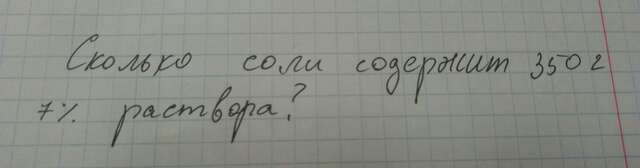 Сколько соли содержит 350 г
7% раствора?